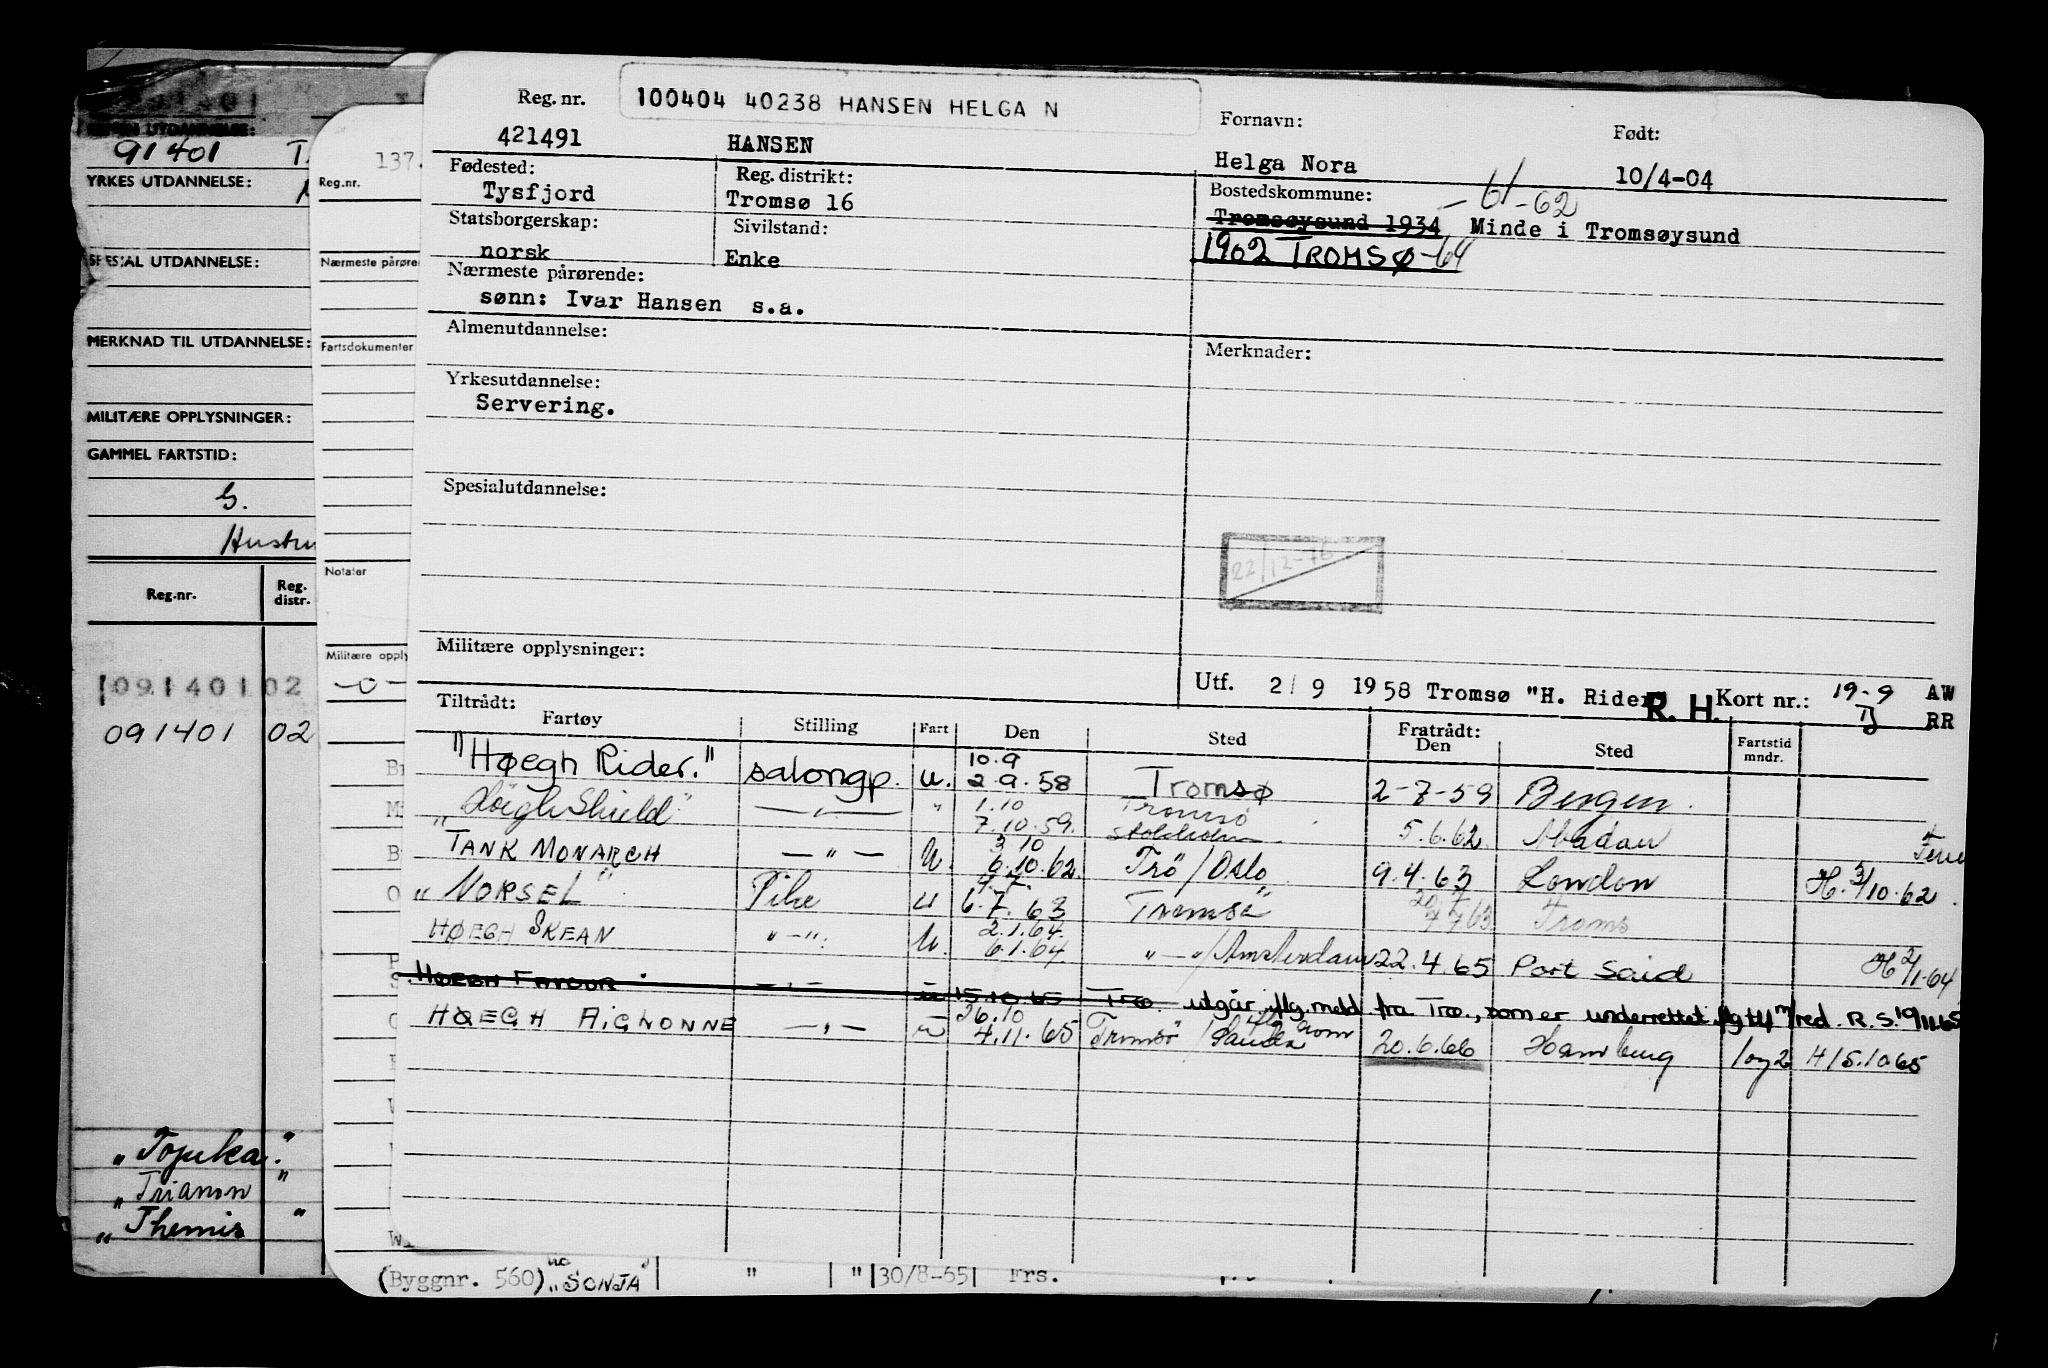 Reg. nr. 100404 40238 HANSEN HELGA N
421491 HANSEN
Fornavn: Helga Nora
Født: 10/4-04
Fødested: Tysfjord
Reg. distrikt: Tromsø 16
Bostedskommune: - 61 - 62
Tromsøysund 1934 Minde i Tromsøysund
1902 TROMSØ -64
Statsborgerskap: norsk
Sivilstand: Enke
Nærmeste pårørende:
sønn: Ivar Hansen s.a.
Almenutdannelse:
Merknader:
Yrkesutdannelse:
Servering.
Spesialutdannelse:
22/12-76
Militære opplysninger:
Utf. 2/9 1958 Tromsø "H. Rider R. H. Kort nr.: 19-9 AW
RR
Tiltrådt: Fartøy Stilling Fart Den Sted Fratrådt: Den Sted Fartstid mndr.
"HØEgh Rider." salongp. u. 10.9 2-9-58 Tromsø 2-7-59 Bergen.
"Høegh Shield" — " — " 1.10 7.10.59. Tromsø Stockholm 5.6.62. Abadan
TANK MONARCH — " — U. 3 10 6.10.62. Trö/Oslo 9.4.63 London H. 3/10.62.
"NORSEL" Pike u 4.7. 6.7.63 Tromsö Troms
HØEGH SKEAN " — " U. 2.1.64. 6.1.64. " — "/Amsterdam 22.4.65 Port Said H 2/1.64
HØEGH FAVOUR — " — u 15.10.65 Trø. utgår iflg. meld. fra Trø., som er underrettet
HØEGH AIGLONNE — " — u 26.10 4.11.65 Tromsö / Sauda 20.6.66 Hamburg 1 og 2 H15.10.65
91401
YRKES UTDANNELSE:
SPESIAL UTDANNELSE:
MERKNAD TIL UTDANNELSE:
MILITÆRE OPPLYSNINGER:
GAMMEL FARTSTID:
G.
Hustru
Reg.-nr. Reg. distr.
091401 02
091401 02
"Topeka."
"Trianon"
"Themis"
137.
Reg.nr.
Nærmeste pårøre
Fartsdokumenter
Notater
Militære opply
—o—
(Byggnr. 560) "SONJA" " " 30/8-65 Frs.